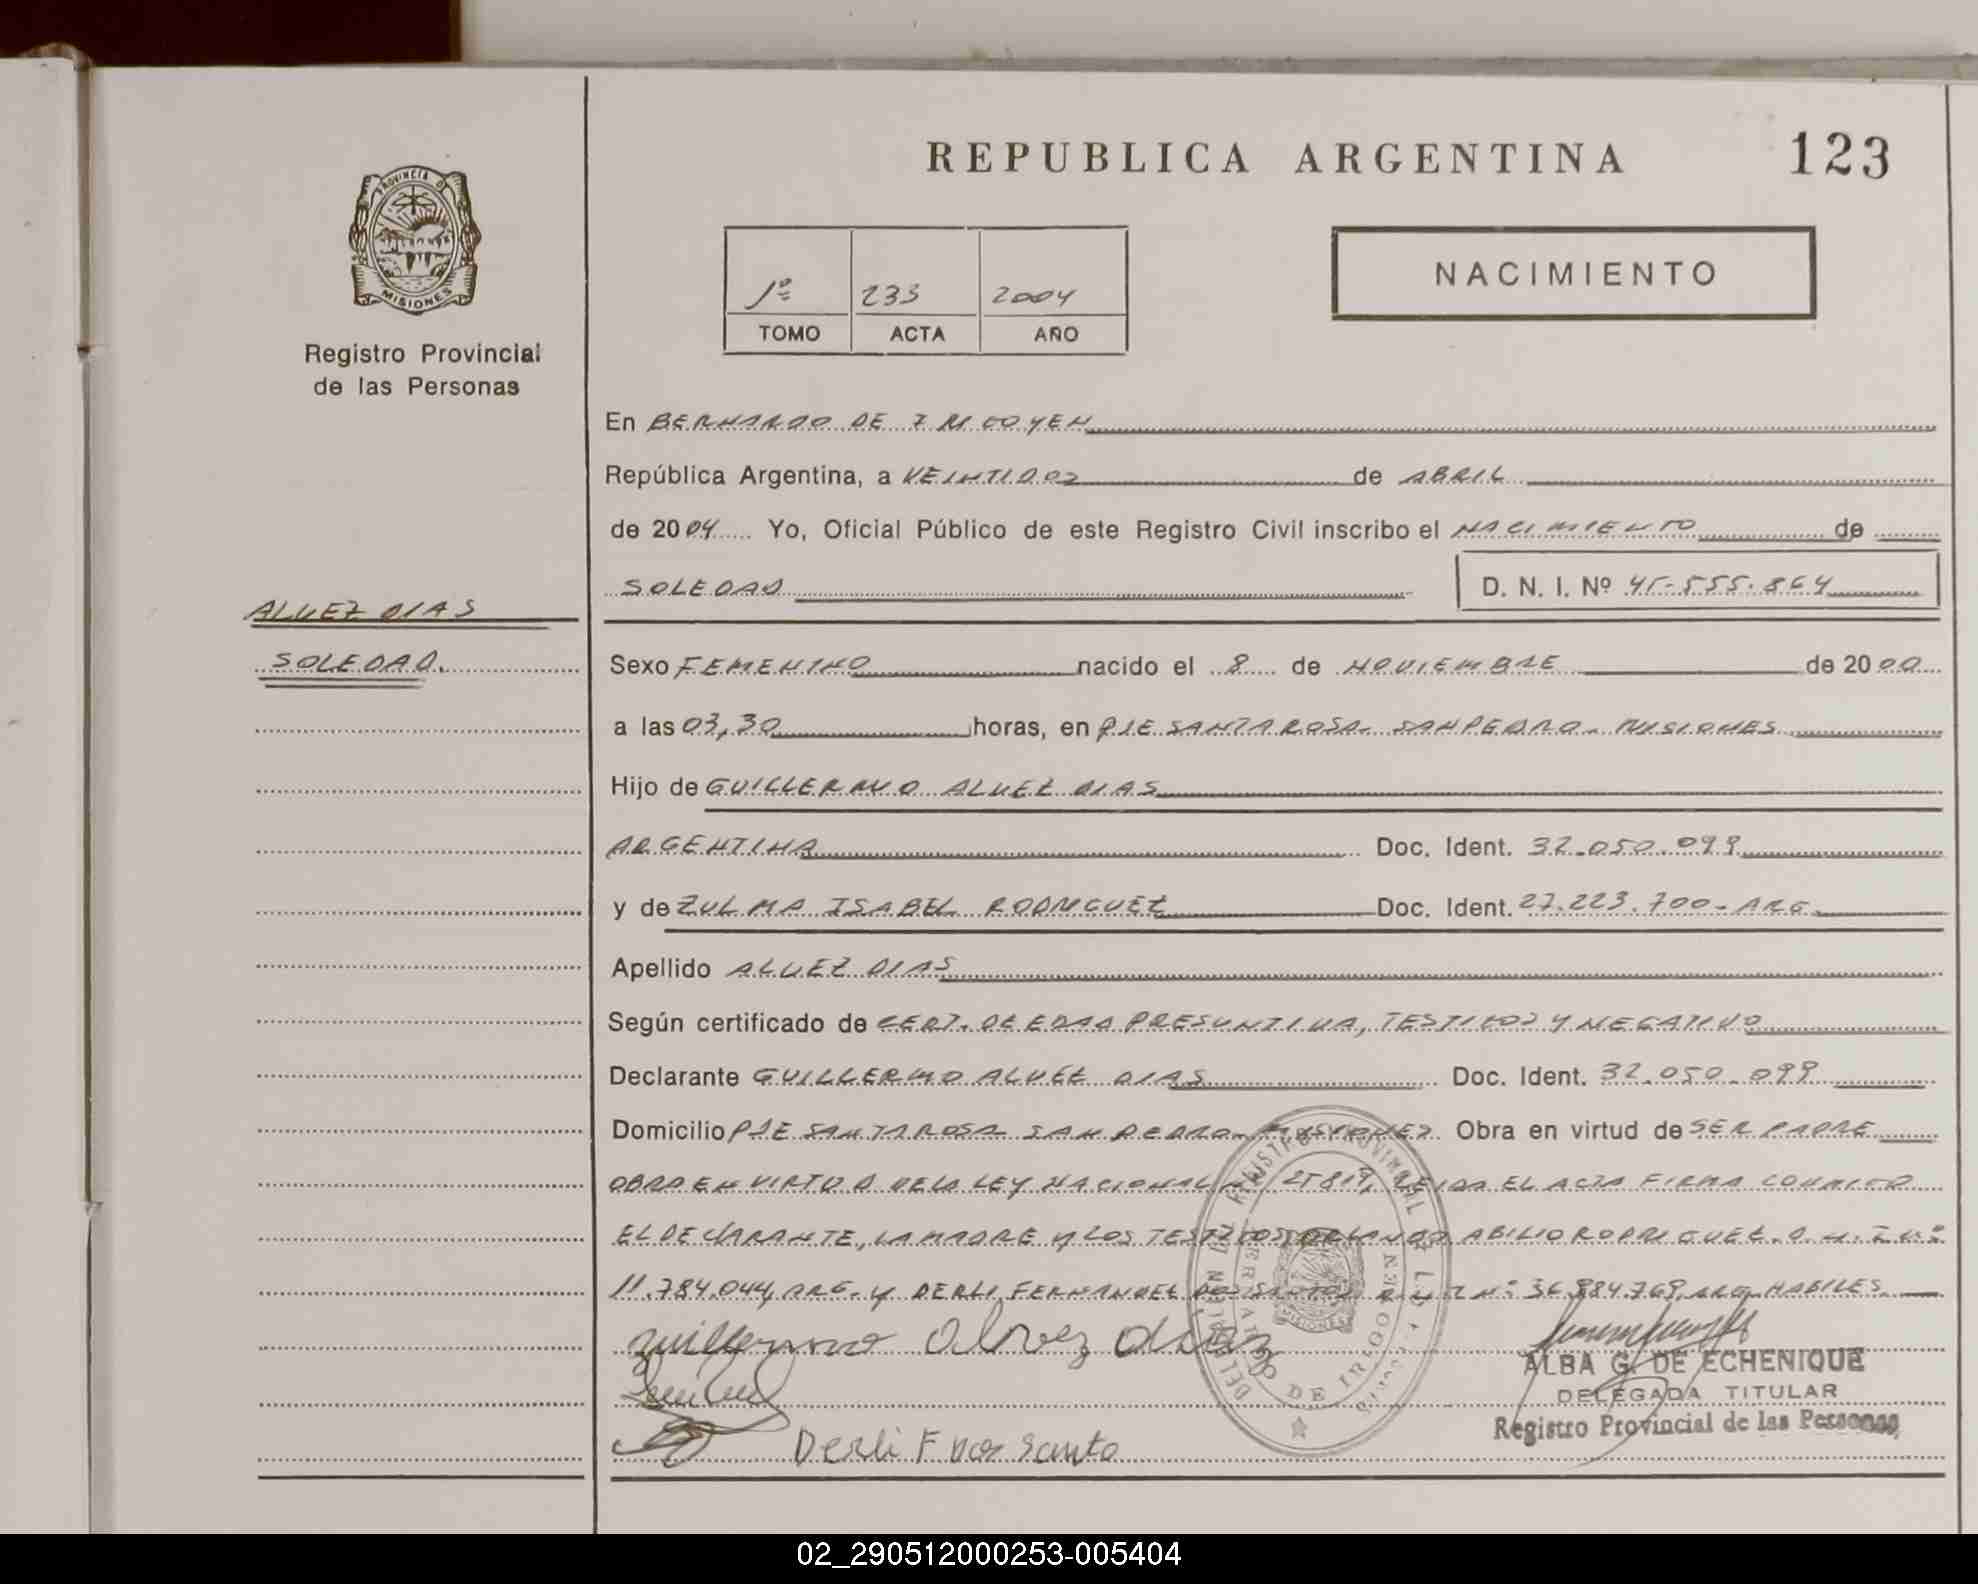 REPUBLICA ARGENTINA
123
PROVINCIA DE
MISIONES
Registro Provincial
de las Personas
1º 233 2004
TOMO ACTA AÑO
NACIMIENTO
En BERNARDO DE IRIGOYEN
República Argentina, a VEINTIDOS de ABRIL
de 2004 Yo, Oficial Público de este Registro Civil inscribo el NACIMIENTO de
SOLEDAD
D. N. I. Nº 45-555.864
ALVEZ DIAS
SOLEDAD.
Sexo FEMENINO nacido el 8 de NOVIEMBRE de 2000
a las 03,30 horas, en PJE SANTA ROSA- SAN PEDRO- MISIONES
Hijo de GUILLERMO ALVEZ DIAS
ARGENTINA Doc. Ident. 32.050.099
y de ZULMA ISABEL RODRIGUEZ Doc. Ident. 27.223.700- ARG.
Apellido ALVEZ DIAS
Según certificado de CERT. DE EDAD PRESUNTIVA, TESTIGOS Y NEGATIVO
Declarante GUILLERMO ALVEZ DIAS Doc. Ident. 32.050.099
Domicilio PJE SANTA ROSA SAN PEDRO- MISIONES Obra en virtud de SER PADRE
OBRA EN VIRTUD DE LA LEY NACIONAL Nº 25819, LEIDA EL ACTA FIRMA CONMIGO
EL DECLARANTE, LA MADRE Y LOS TESTIGOS ORLANDO ABILIO RODRIGUEZ. D.N.I Nº
11.784.044, ARG. Y DERLI FERNANDEZ DOS SANTOS D.N.I Nº 36.884.769, ARG. HABILES
guillermo alvez diaz
Derli F dos Santo
REGISTRO PROVINCIAL
BERNARDO DE IRIGOYEN
ALBA G. DE ECHENIQUE
DELEGADA TITULAR
Registro Provincial de las Personas
02_290512000253-005404